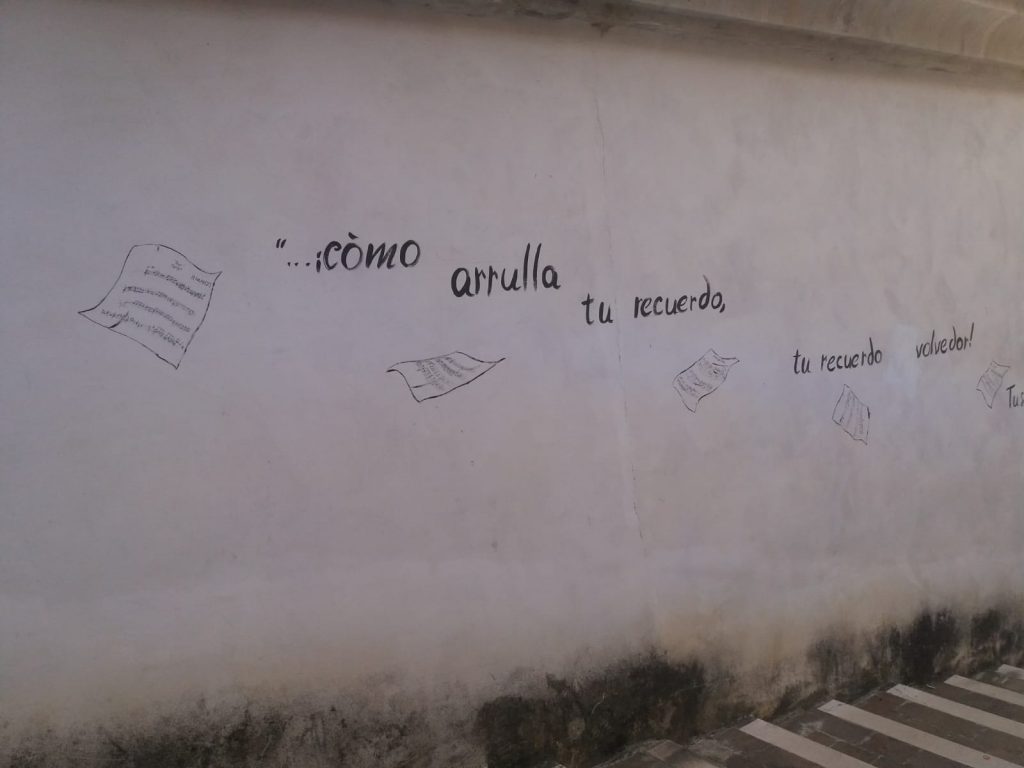 "...¡còmo arrulla tu recuerdo, tu recuerdo volvedor!